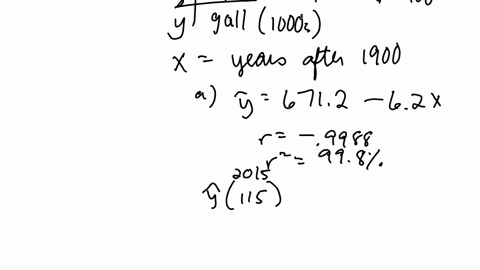 y gall (1000s)
x = years after 1900
a) ŷ = 671.2 - 6.2x
r = -.9988
r² = 99.8%
2015
ŷ(115)